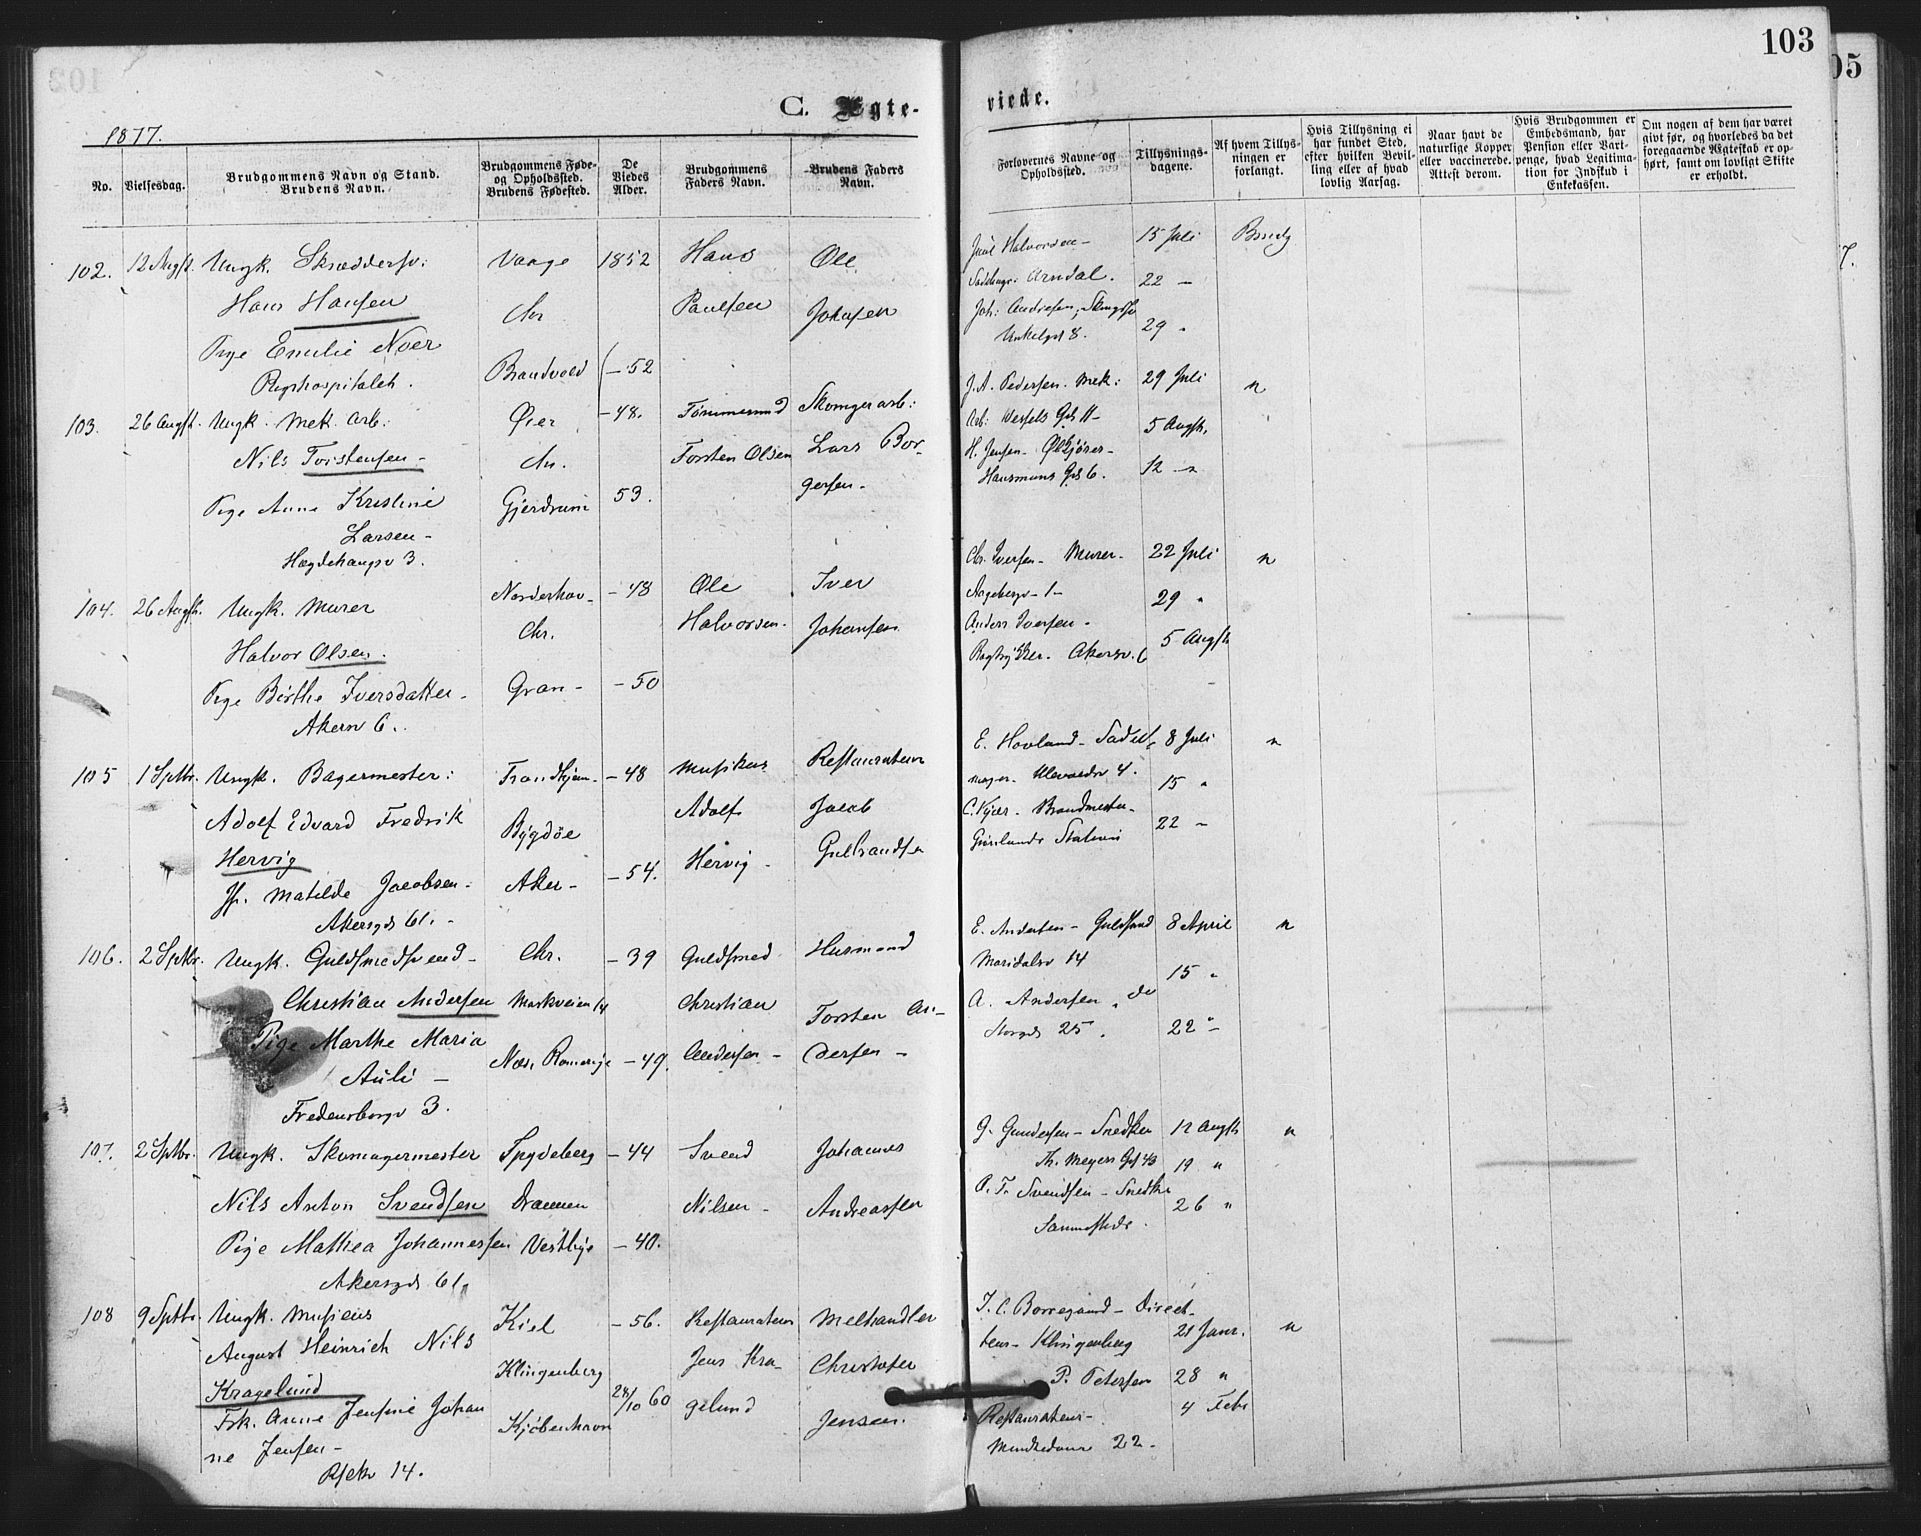 103
05
C. Ægte-
viede.
1877.
No.
Vielsesdag.
Brudgommens Navn og Stand.
Brudens Navn.
Brudgommens Føde-
og Opholdssted.
Brudens Fødested.
De
Viedes
Alder.
Brudgommens
Faders Navn.
Brudens Faders
Navn.
Forlovernes Navne og
Opholdssted.
Tillysnings-
dagene.
Af hvem Tillys-
ningen er
forlangt.
Hvis Tillysning ei
har fundet Sted,
efter hvilken Bevil-
ling eller af hvad
lovlig Aarsag.
Naar havt de
naturlige Kopper
eller vaccinerede.
Attest derom.
Hvis Brudgommen er
Embedsmand, har
Pension eller Vart-
penge, hvad Legitima-
tion for Indskud i
Enkekassen.
Om nogen af dem har været
givt før, og hvorledes da det
foregaaende Ægteskab er op-
hørt, samt om lovligt Skifte
er erholdt.
102. 12 Augst. Ungk. Skræddersv: Vaage 1852 Hans Ole
Hans Hansen Chr Paulsen Johnsen
Pige Emilie Noer Brandvold - 52
Rigshospitalet.
Halvorsen - 15 Juli
Arndal. 22 -
Joh: Andresen, 29 "
8.
103. 26 Augst. Ungk. Mek. Arb: Øier - 48. Tømmermand Skomagerarb:
Nils Torstensen - Chr. Torsten Olsen Lars Bor-
gersen -
Pige Anne Kristine Gjerdrum 53.
Larsen -
Hægdehaugsv 3.
J. A. Pedersen. Mek: 29 Juli "
Arb: Vessels Gd 11 - 5 Augst.
H. Jensen - Ølkjører - 12 - "
Hausmans Gd 6.
104. 26 Augst. Ungk. Murer Norderhov - - 48 Ole Iver
Halvor Olsen. Chr. Halvorsen. Johansen
Pige Birthe Iversdatter - Gran - - 50
Akersv 6.
Chr. Iversen - Murer - 22 Juli "
- 1 - 29 "
Anders Iversen - 5 Augst
Akersv. 6
105 1 Septbr. Ungk. Bagermester: Trondhjem - 48 Musikus Restaurateur
Adolf Edvard Fredrik Bygdøe Adolf Jacob
Hervig Hervig - Gulbrandsen
Jf. Matilde Jacobsen - Aker - - 54.
Akersgd 61. -
E. Hovland - Sadel- 8 Juli "
mager. Ullevaalsv 4. 15 "
C. Kjær - Brandmester - 22 -
Grønlands Station
106. 2 Septbr. Ungk. Guldsmedsvend - Chr. - 39 Guldsmed Husmand
Christian Andersen Markveien 14 Christian Torsten An-
Pige Marthe Maria Næs, Romerige - 49. Andersen - dersen -
Auli -
Fredensborgv 3.
E. Andersen - Guldsmd 8 April "
Maridalsv 14 15 "
A. Andersen " do
Storgd 25. 22 " -
107. 2 Septbr. Ungk. Skomagermester Spydeberg - 44 Svend Johannes
Nils Anton Svendsen Drammen Nilsen - Andreassen
Pige Mathea Johannessen Vestbye - 40.
Akersgd 61"
G. Gundersen - Snedker 12 Augst "
Th. Meyers Gd 43 19 "
Svendsen - Snedker 26 "
Sammesteds.
108 9 Septbr. Ungk. Musicus Kiel - 56. Restaurateur Melhandler
August Heinrich Nils Klingenberg Jens Kra- Christofer
Kragelund gelund Jensen.
Frk. Anne Jensine Johan Kjøbenhavn 28/10 60
ne Jensen -
14.
Borregaard - Direct-
teur - Klingenberg 21 Janr. "
P. Petersen 28 "
Restaurateur - 4 Febr
22 -